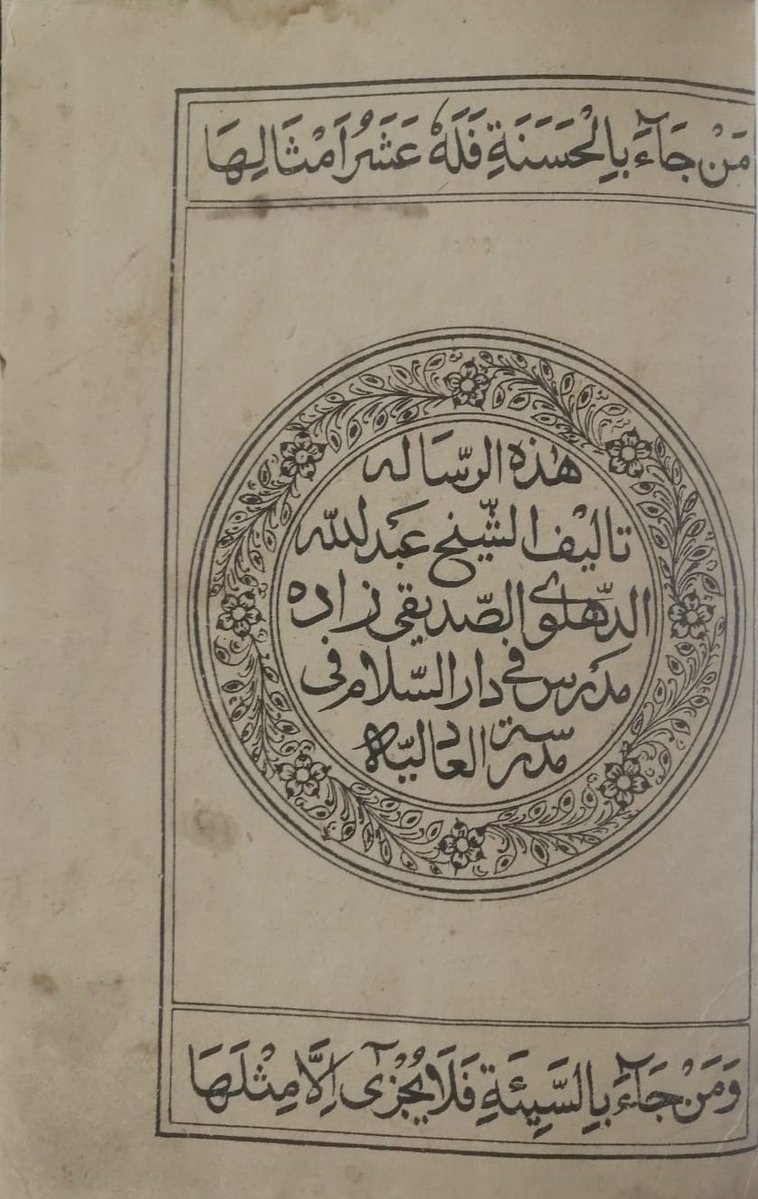 مَنْ جَآءَ بِالْحَسَنَةِ فَلَهُ عَشَرُ اَمْثَالِهَا
هٰذه الرّسَاله
تاليْف الشّيخ عَبد لله
الدّهلوى الصّديقى زاده
مدَرس فى دار السّلام فى
مدرسة العادليّه
وَمَنْ جَآءَ بِالسَّيِئَةِ فَلَا يُجْزٰٓى اِلَّا مِثْلَهَا